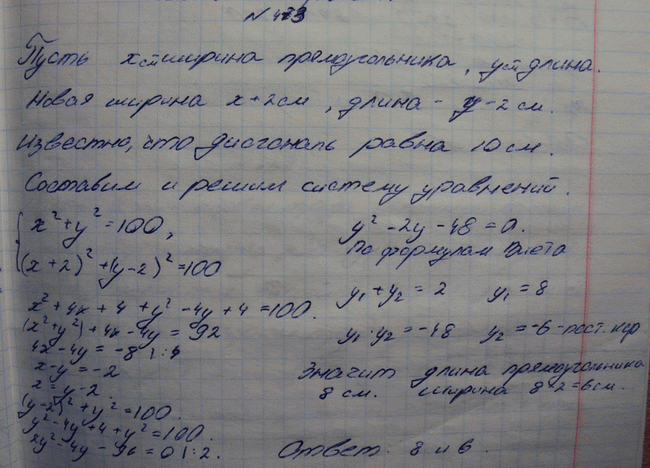 № 473
Пусть x см ширина прямоугольника, y см длина.
Новая ширина x+2 см, длина - y-2 см.
Известно, что диагональ равна 10 см.
Составим и решим систему уравнений.
{ x² + y² = 100,
(x+2)² + (y-2)² = 100
x² + 4x + 4 + y² - 4y + 4 = 100.
(x² + y²) + 4x - 4y = 92
4x - 4y = -8 | : 4
x - y = -2
x = y - 2.
(y-2)² + y² = 100.
y² - 4y + 4 + y² = 100.
2y² - 4y - 96 = 0 | : 2.
y² - 2y - 48 = 0.
По формулам Виета
y₁ + y₂ = 2 y₁ = 8
y₁ · y₂ = -48 y₂ = -6 - пост. кор
Значит длина прямоугольника
8 см. ширина 8-2=6 см.
Ответ. 8 и 6.